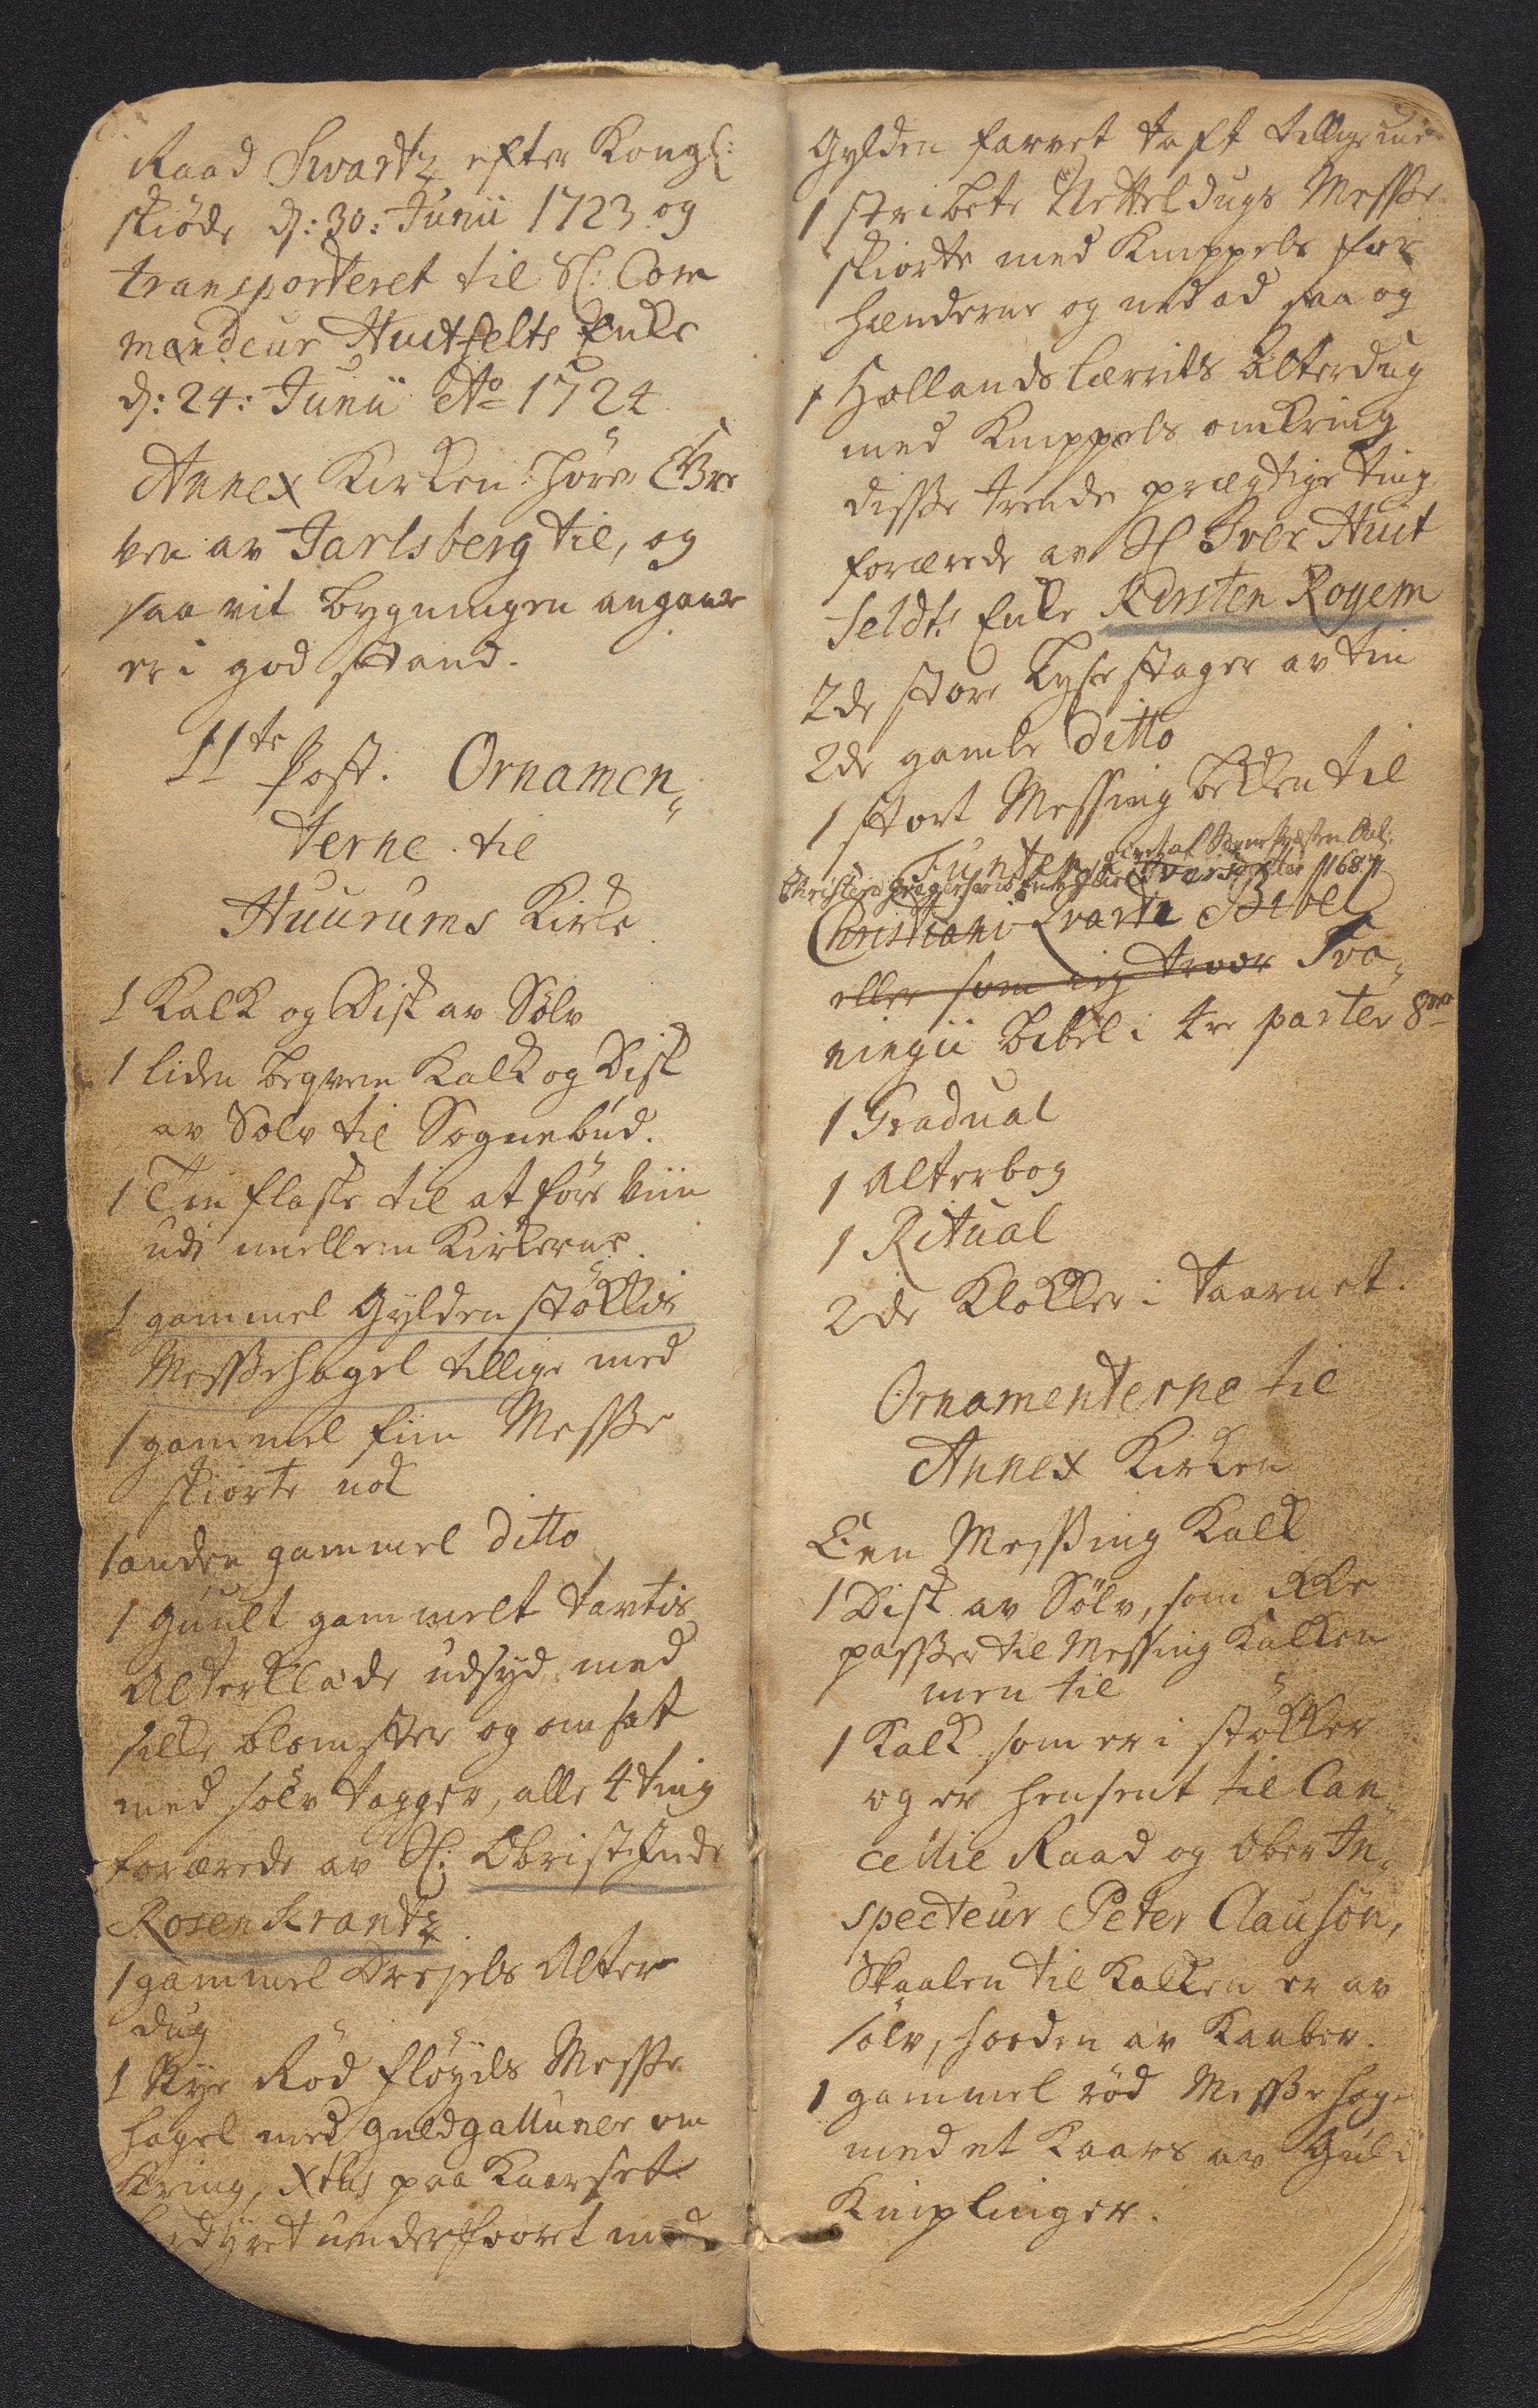 Raad Swartz efter Kongl:
skiöde d: 30: Junii 1723 og
transporteret til Sl: Com
mandeur Huitfelts Enke
d: 24: Junii Ao 1724
Annex Kirken hörer Gre
ven av Jarlsberg til, og
saa vit bygningen angaar
er i god stand.
11te Post. Ornamen„
terne til
Huurums Kirke
1 Kalk og Disk av Sölv
1 liden beqvem Kalk og Disk
av Sölv til Sognebud.
1 Tin flaske til at före Viin
udi mellem Kirkerne.
1 gammel Gylden stökkis
Messehagel tillige med
1 gammel fiin Messe
skiorte nok
1 anden gammel ditto
1 Guult gammelt tavtis
Alterklæde udsyd med
silke blomster og omsat
med sölv tagger, alle 4 ting
forærede av Sl: Obrist
Rosenkrantz.
1 gammel Drejels Alter
dug
1 Nye Röd fløyels Messe
hagel med guldgalluner om
kring, Xtus paa Kaarset
underfooret med
Gylden farvet taft tillige med
1 stribete Nettelduugs Messe
skiorte med Knippels for
hænderne og ned ad saa og
1 Hollands lærrits Alterdug
med Knippels omkring
disse trende prægtige ting
forærede av Sl Iver Huit
feldts Enke Kirsten Røyem
2de store Lysestager av tin
2de gamle ditto
1 stort Messing bekken til
Funten, givet af
Christen Gregersens Enke 1687
Christiani Qvarti Bibel
eller som ieg troer Sva„
ningii bibel i tre parter 8vo
1 Gradual
1 Alterbog
1 Ritual
2de Klokker i Taarnet.
Ornamenterne til
Annex Kirken
Een Messing Kalk
1 Disk av Sölv, som ikke
passer til Messing Kalken
men til
1 Kalk som er i stökker
og er hensent til Can„
cellie Raad og Ober In„
specteur Peter Clausön,
Skaalen til Kalken er av
sölv, foeden av Kaaber.
1 gammel röd Messehagel
med et Kaars av Guld
Kniplinger.